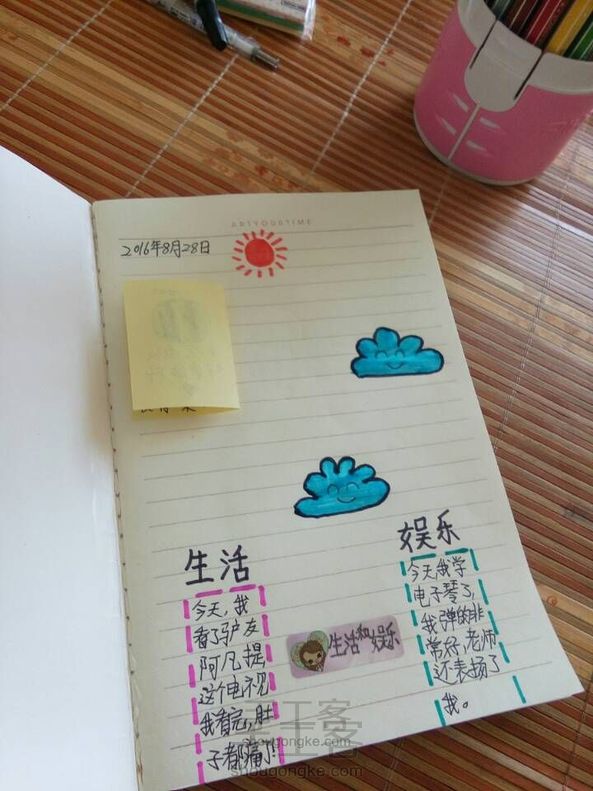 ARTYOURTIME
2016年8月28日
生活
今天,我
看了驴友
阿凡提
这个电视
我看完,肚
子都痛了!
生活和娱乐
娱乐
今天我学
电子琴了,
我弹的非
常好,老师
还表扬了
我。
手工客
shougongke.com
shougongke.com